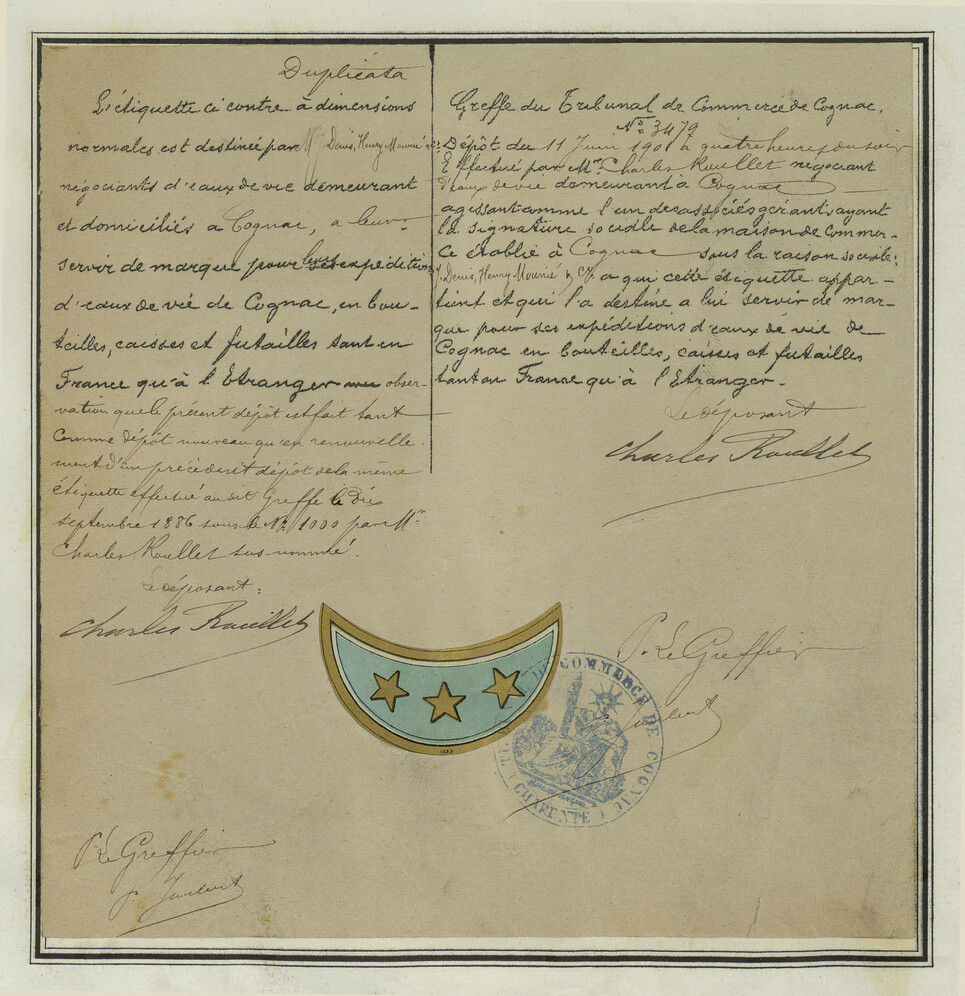 Duplicata
L'étiquette ci contre à dimensions
normales est destinée par Mrs J. Denis, Henry Mounié & Cie
négociants d'eaux de vie demeurant
et domiciliés à Cognac, a leur
servir de marque pour leurs expéditions
d'eaux de vie de Cognac, en bou-
teilles, caisses et futailles tant en
France qu'à l'Etranger obser-
vation que le présent dépôt est fait tant
comme dépôt nouveau qu'en renouvelle-
ment d'un précédent dépôt de la même
étiquette effectué au dit Greffe le Dix
septembre 1886 sous le No 1000 par Mr
Charles Roullet sus-nommé.
Le déposant:
Charles Roullet
P. Le Greffier
Greffe du Tribunal de Commerce de Cognac.
No 3479
Dépôt du 11 Juin 1901 à quatre heures du soir
Effectué par Mr Charles Roullet négociant
d'eaux de vie demeurant à Cognac
agissant comme l'un des associés gérants ayant
la signature sociale de la maison de Commer-
ce établie à Cognac sous la raison sociale:
J. Denis, Henry Mounié & Cie a qui cette étiquette appar-
tient et qui l'a destiné a lui servir de mar-
que pour ses expéditions d'eaux de vie de
Cognac en bouteilles, caisses et futailles
tant en France qu'à l'Etranger.
Le déposant
Charles Roullet
P. Le Greffier
DE COMMERCE DE COGNAC
(CHARENTE)